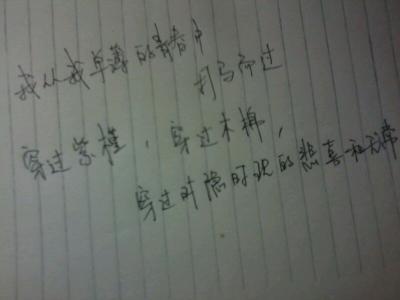 我从我单薄的青春中
打马而过
穿过紫槿,穿过木棉,
穿过时隐时现的悲喜和无常